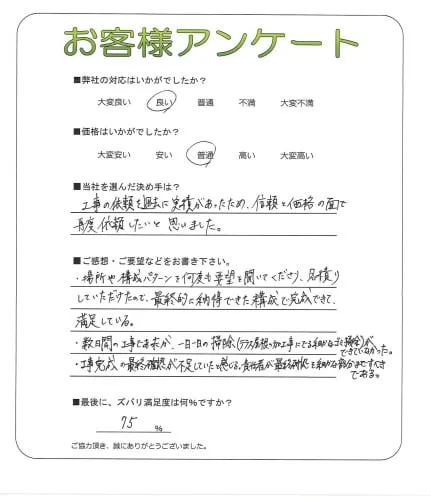 お客様アンケート
■弊社の対応はいかがでしたか？
大変良い　良い　普通　不満　大変不満
■価格はいかがでしたか？
大変安い　安い　普通　高い　大変高い
■当社を選んだ決め手は？
工事の依頼を過去に実積があったため、信頼と価格の面で
再度依頼したいと思いました。
■ご感想・ご要望などをお書き下さい。
・場所や構成パターンを何度も要望を聞いてくださり、見積り
していただけたので、最終的に納得できた構成で完成できて、
満足している。
・数日間の工事であったが、一日一日の掃除(テラス屋根の加工事にでる細かなゴミ掃除)が
できていなかった。
・工事完成の最終確認が不足していた感じる。責任者が最終確認を細かな部分まですべき
である。
■最後に、ズバリ満足度は何％ですか？
75 %
ご協力頂き、誠にありがとうございました。